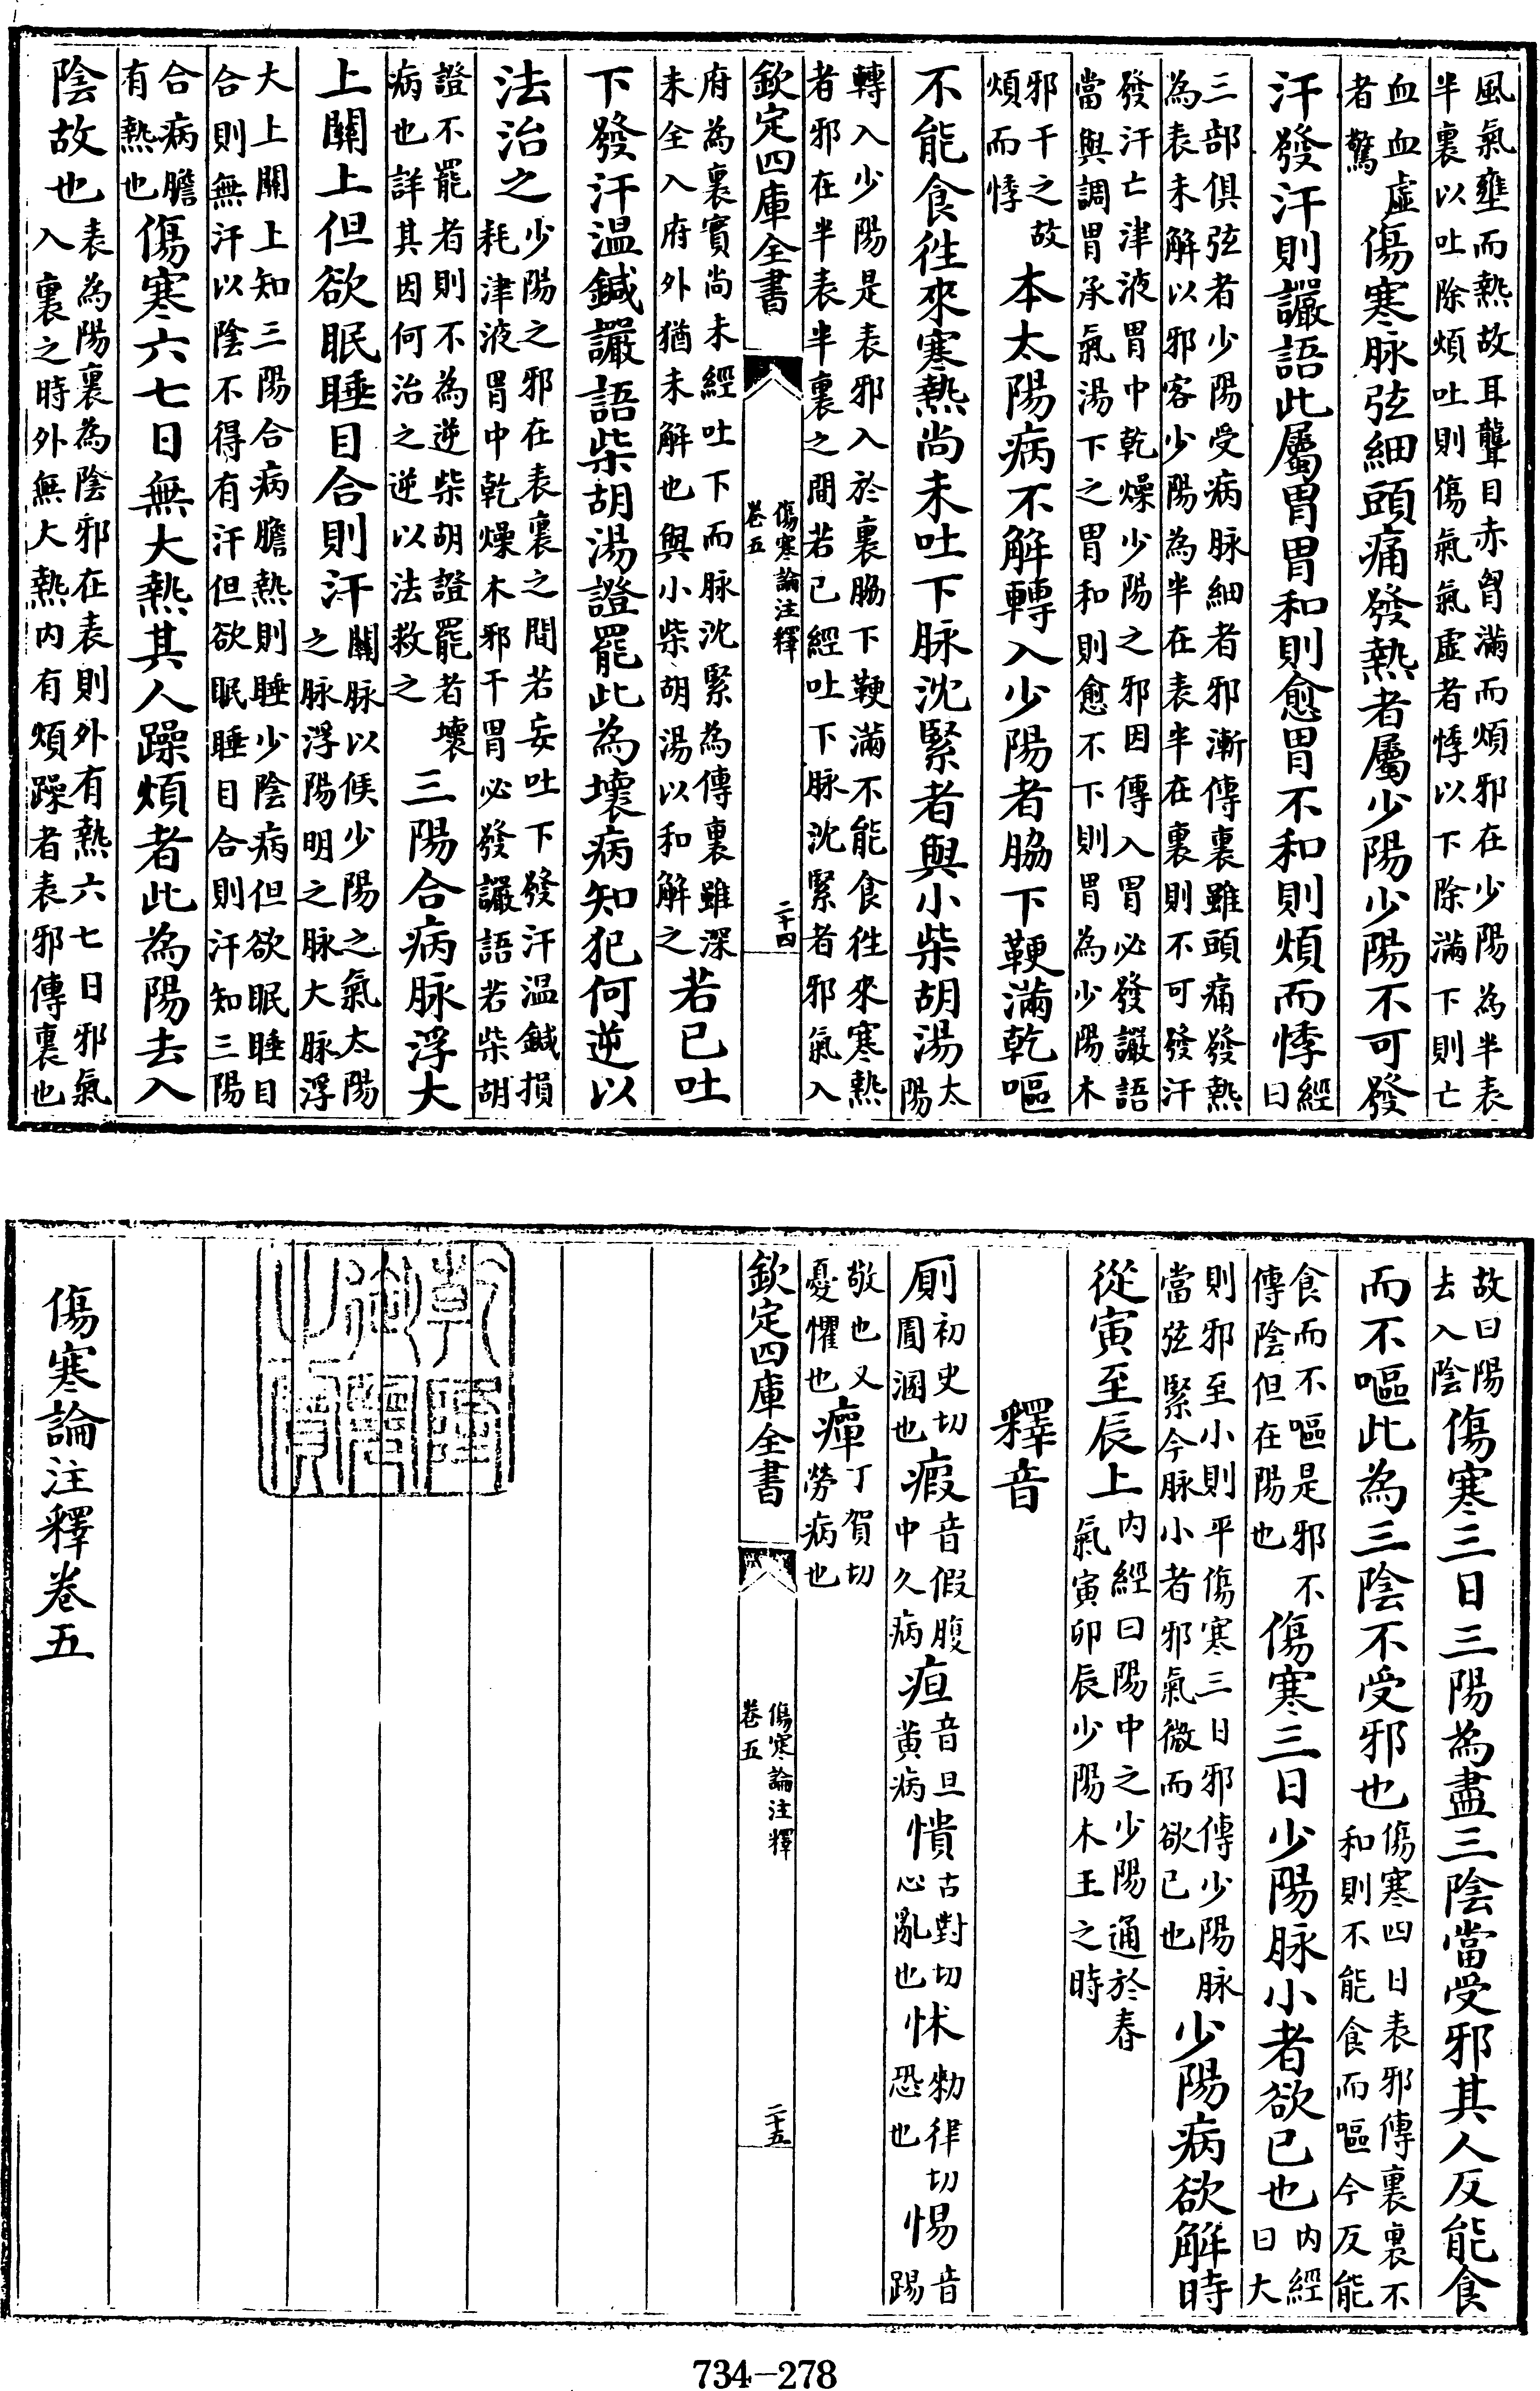 風氣壅而熱故耳聾目赤胷滿而煩邪在少陽為半表
半裏以吐除煩吐則傷氣氣虛者悸以下除滿下則亡
血血虛
者驚
傷寒脉弦細頭痛發熱者屬少陽少陽不可發
汗發汗則讝語此屬胃胃和則愈胃不和則煩而悸
經
曰
三部俱弦者少陽受病脉細者邪漸傳裏雖頭痛發熱
為表未解以邪客少陽為半在表半在裏則不可發汗
發汗亡津液胃中乾燥少陽之邪因傳入胃必發讝語
當與調胃承氣湯下之胃和則愈不下則胃為少陽木
邪干之故
煩而悸
本太陽病不解轉入少陽者脇下鞕滿乾嘔
不能食徃來寒熱尚未吐下脉沈緊者與小柴胡湯
太
陽
轉入少陽是表邪入於裏脇下鞕滿不能食徃來寒熱
者邪在半表半裏之間若已經吐下脉沈緊者邪氣入
欽定四庫全書
傷寒論注釋
卷五
二十四
府為裏實尚未經吐下而脉沈緊為傳裏雖深
未全入府外猶未解也與小柴胡湯以和解之
若已吐
下發汗温鍼讝語柴胡湯證罷此為壞病知犯何逆以
法治之
少陽之邪在表裏之間若妄吐下發汗温鍼損
耗津液胃中乾燥木邪干胃必發讝語若柴胡
證不罷者則不為逆柴胡證罷者壞
病也詳其因何治之逆以法救之
三陽合病脉浮大
上關上但欲眠睡目合則汗
關脉以候少陽之氣太陽
之脉浮陽明之脉大脉浮
大上關上知三陽合病膽熱則睡少陰病但欲眠睡目
合則無汗以陰不得有汗但欲眠睡目合則汗知三陽
合病膽
有熱也
傷寒六七日無大熱其人躁煩者此為陽去入
陰故也
表為陽裏為陰邪在表則外有熱六七日邪氣
入裏之時外無大熱內有煩躁者表邪傳裏也
故曰陽
去入陰
傷寒三日三陽為盡三陰當受邪其人反能食
而不嘔此為三陰不受邪也
傷寒四日表邪傳裏裏不
和則不能食而嘔今反能
食而不嘔是邪不
傳陰但在陽也
傷寒三日少陽脉小者欲已也
內經
曰大
則邪至小則平傷寒三日邪傳少陽脉
當弦緊今脉小者邪氣微而欲已也
少陽病欲解時
從寅至辰上
內經曰陽中之少陽通於春
氣寅卯辰少陽木王之時
釋音
厠
初史切
圊溷也
瘕
音假腹
中久病
疸
音旦
黄病
憒
古對切
心亂也
怵
勑律切
恐也
惕
音
踢
敬也又
憂懼也
癉
丁賀切
勞病也
欽定四庫全書
傷寒論注釋
卷五
二十五
乾隆御覽之寶
傷寒論注釋卷五
734-278